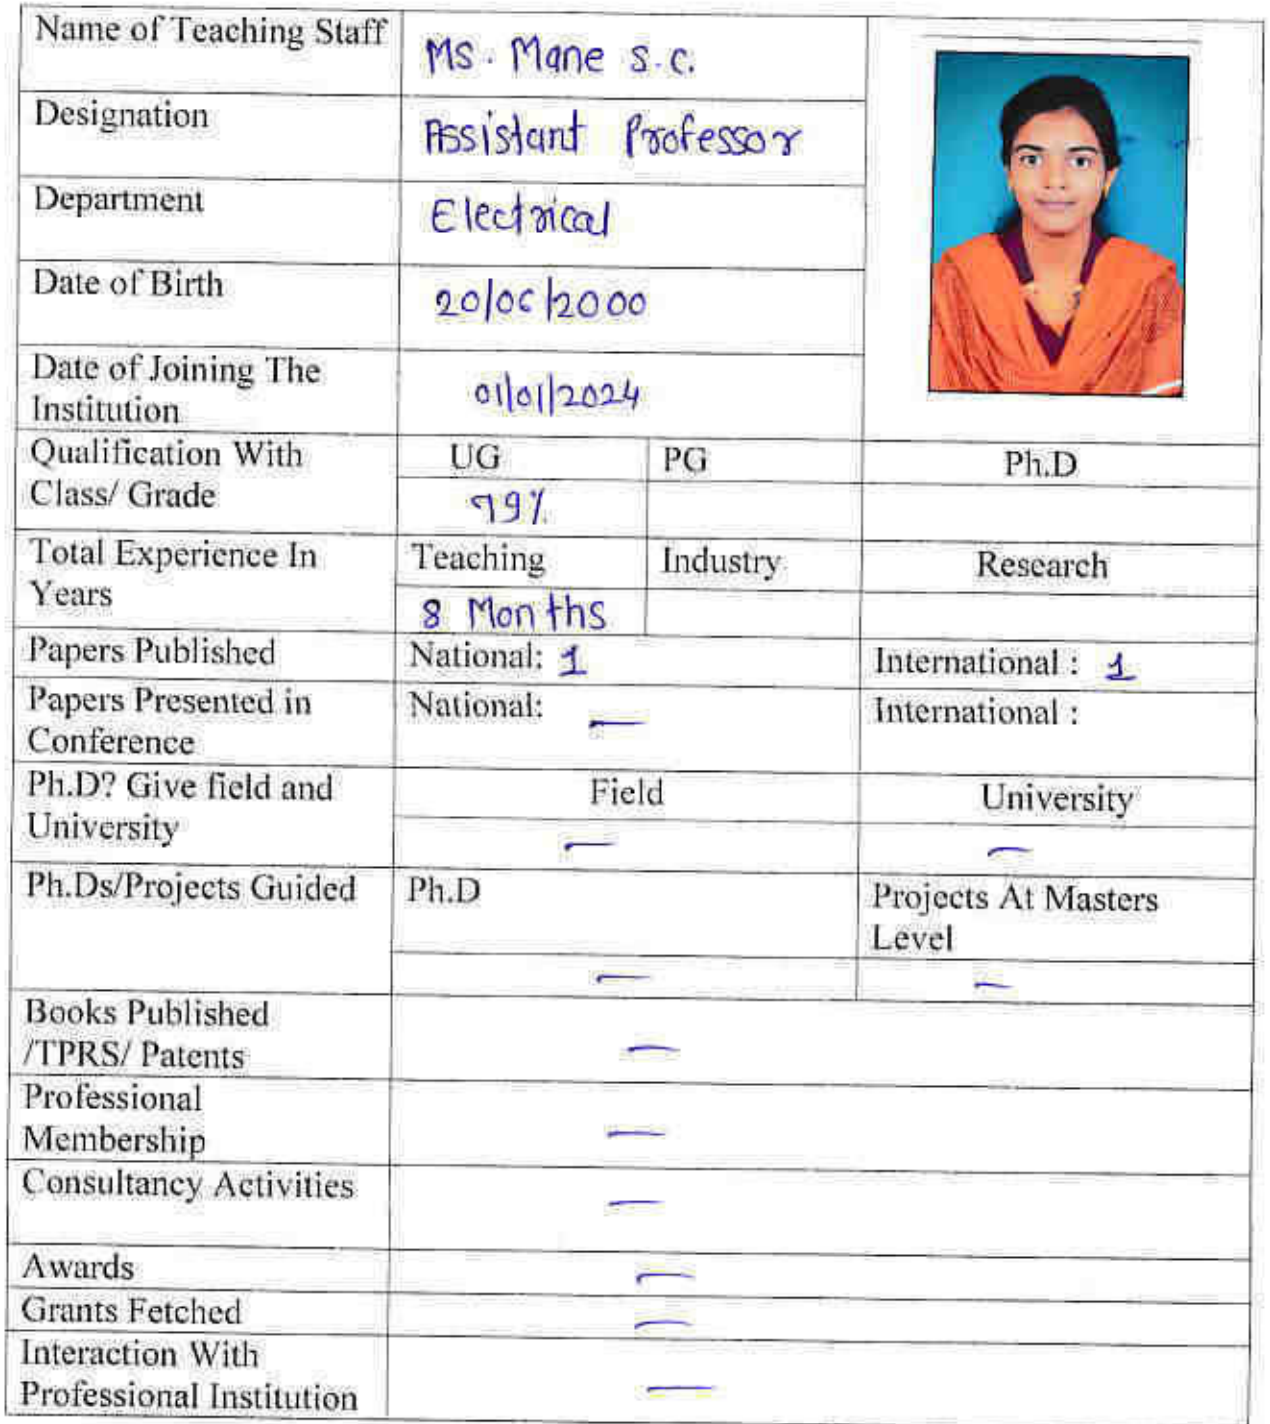 Name of Teaching Staff
Ms. Mane S.C.
Designation
Assistant Professor
Department
Electrical
Date of Birth
20/06/2000
Date of Joining The
Institution
01/01/2024
Qualification With
Class/ Grade
UG
PG
Ph.D
79%
Total Experience In
Years
Teaching
Industry
Research
8 Months
Papers Published
National: 1
International : 1
Papers Presented in
Conference
National: —
International :
Ph.D? Give field and
University
Field
University
—
—
Ph.Ds/Projects Guided
Ph.D
Projects At Masters
Level
—
—
Books Published
/TPRS/ Patents
—
Professional
Membership
—
Consultancy Activities
—
Awards
—
Grants Fetched
—
Interaction With
Professional Institution
—